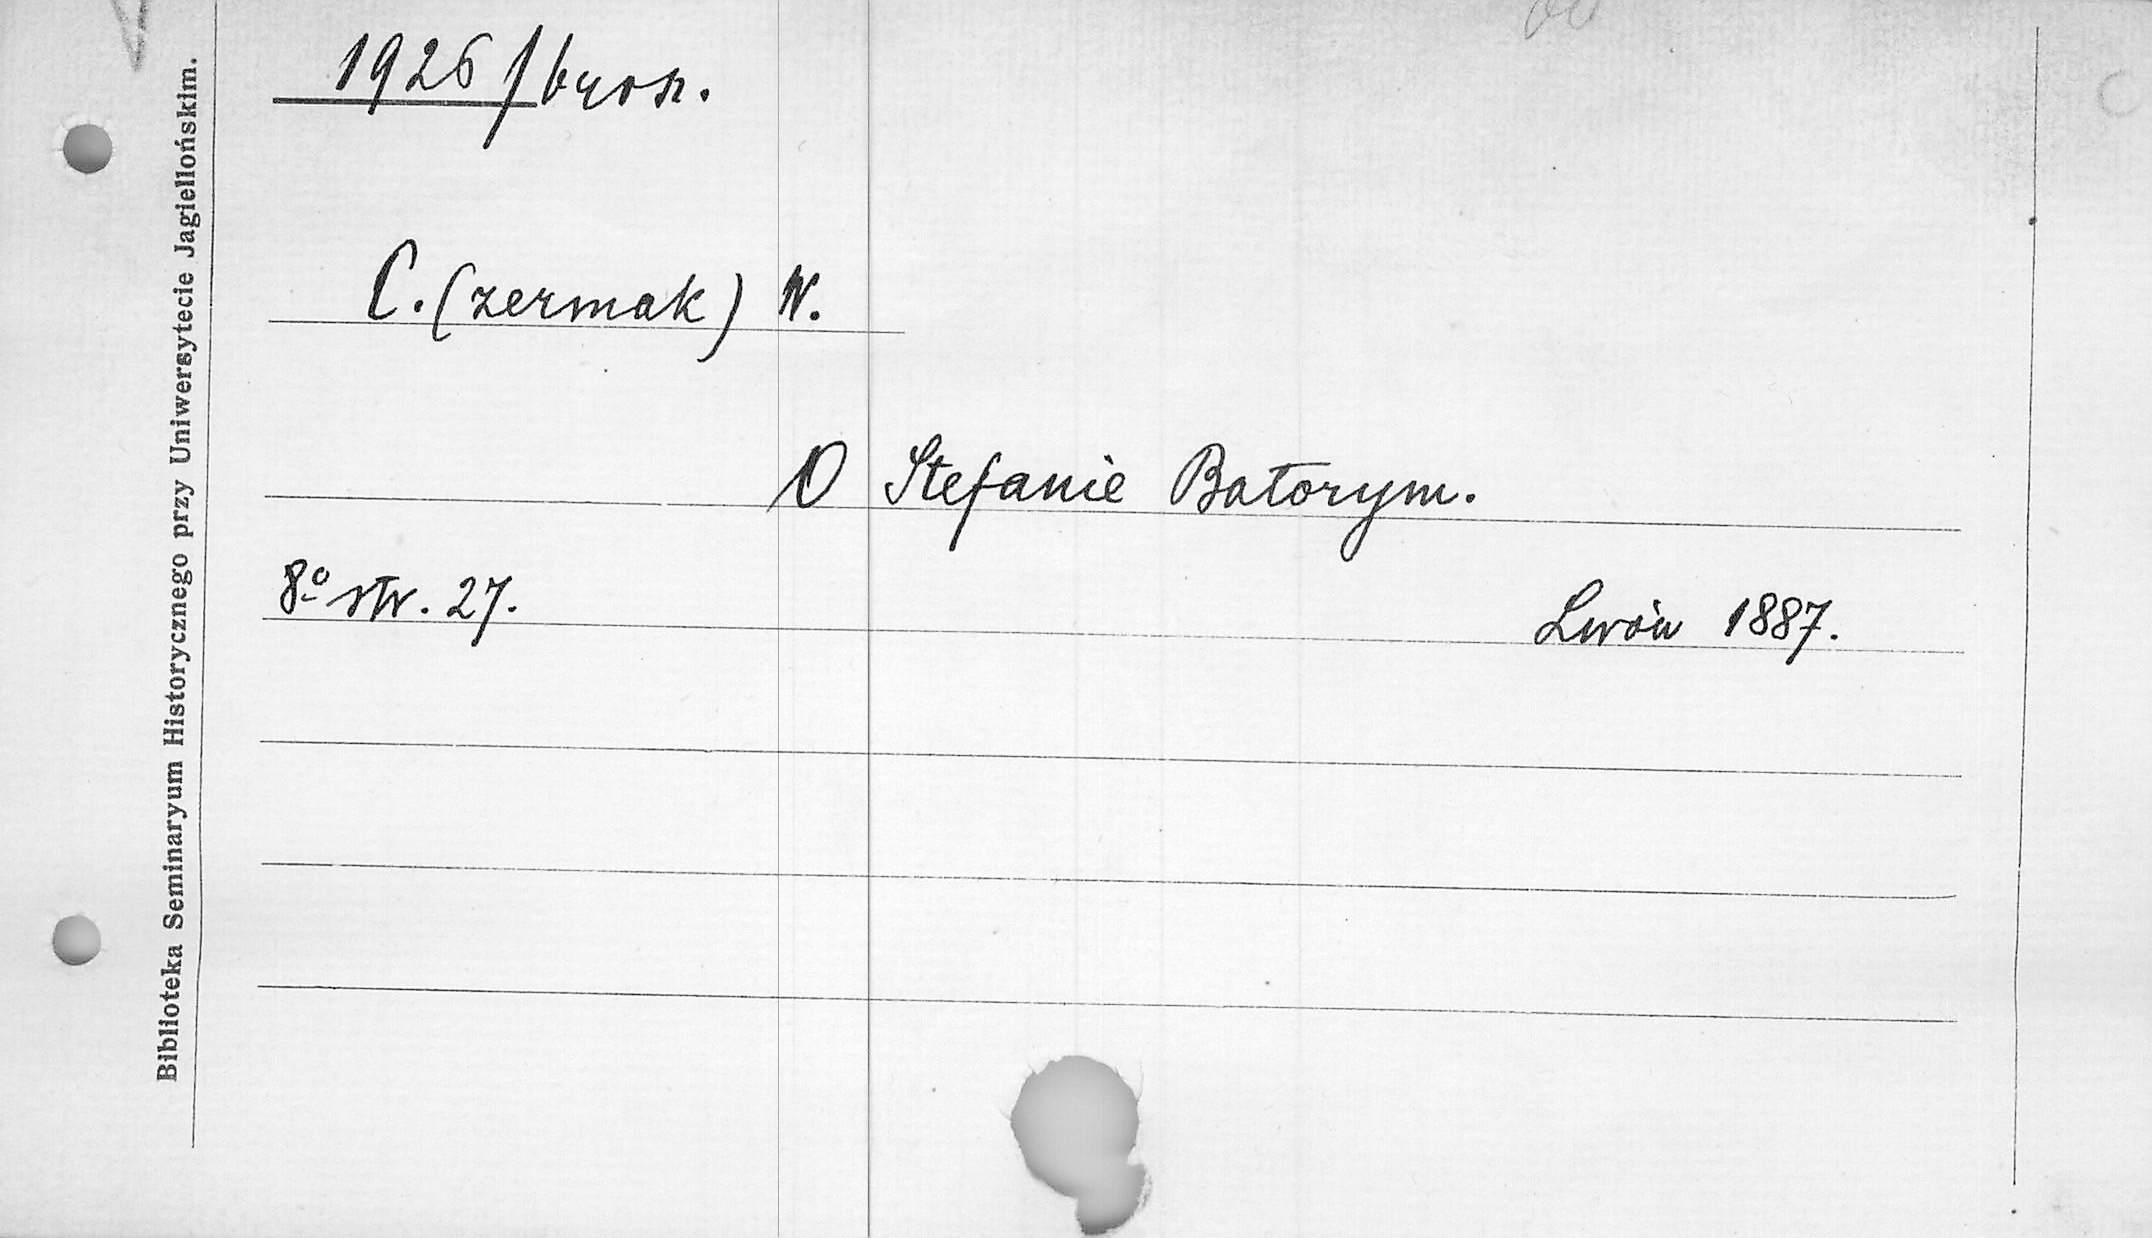 1926 / bros.
C.(zermak) W.
O Stefanie Batorym.
8º str. 27.
Lwów 1887.
Biblioteka Seminaryum Historycznego przy Uniwersytecie Jagiellońskim.